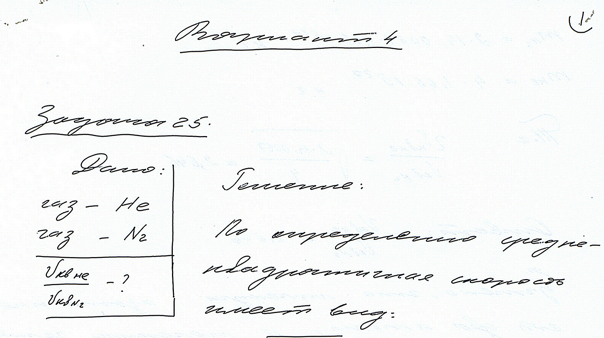 Вариант 4
Задача 25.
Дано:
газ - He
газ - N2
Vкв He
Vкв N2
- ?
Решение:
По определению средне-
квадратичная скорость
имеет вид: